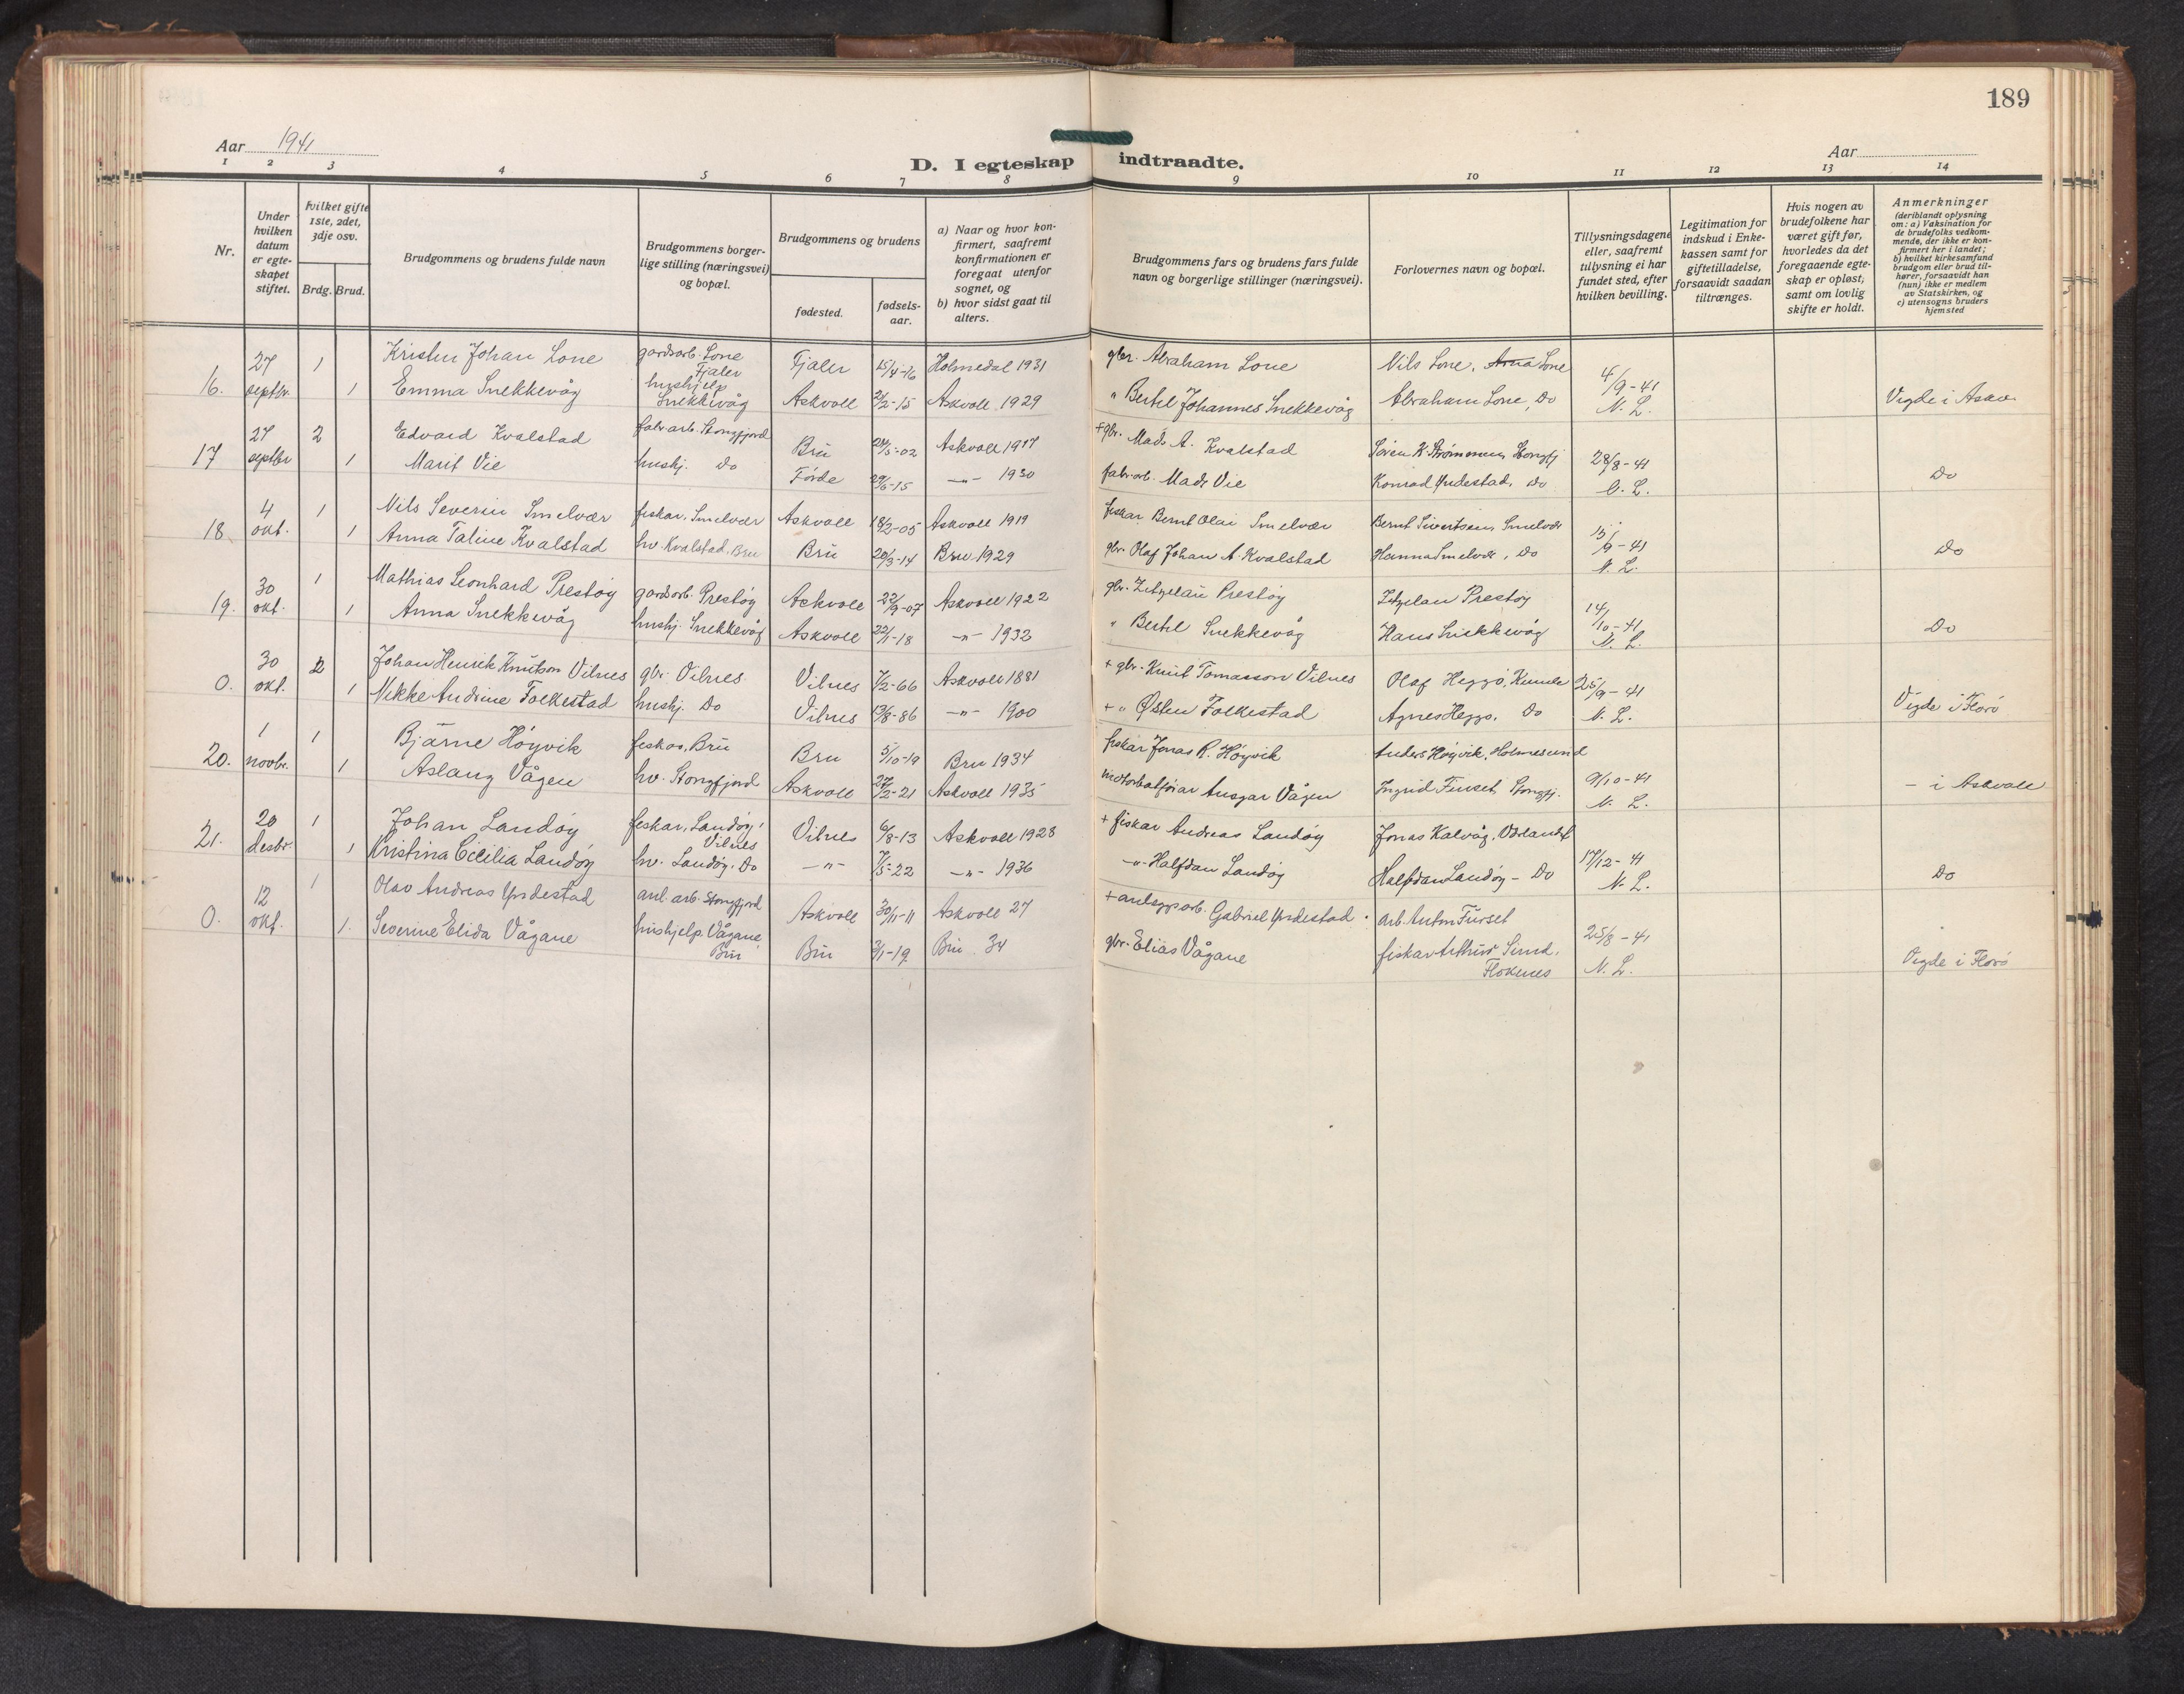 189
Aar 1941
D. I egteskap indtraadte.
Aar
1 2 3 4 5 6 7 8 9 10 11 12 13 14
Nr.
Under hvilken datum er egteskapet stiftet.
hvilket gifte 1ste, 2det, 3dje osv.
Brdg. Brud.
Brudgommens og brudens fulde navn
Brudgommens borgerlige stilling (næringsvei) og bopæl.
Brudgommens og brudens
fødested.
fødsels-aar.
a) Naar og hvor konfirmert, saafremt konfirmationen er foregaat utenfor sognet, og
b) hvor sidst gaat til alters.
Brudgommens fars og brudens fars fulde navn og borgerlige stillinger (næringsvei).
Forlovernes navn og bopæl.
Tillysningsdagene eller, saafremt tillysning ei har fundet sted, efter hvilken bevilling.
Legitimation for indskud i Enkekassen samt for giftetilladelse, forsaavidt saadan tiltrænges.
Hvis nogen av brudefolkene har været gift før, hvorledes da det foregaaende egteskap er opløst, samt om lovlig skifte er holdt.
Anmerkninger
(deriblandt oplysning om: a) Vaksination for de brudefolks vedkommende, der ikke er konfirmert her i landet; b) hvilket kirkesamfund brudgom eller brud tilhører, forsaavidt han (hun) ikke er medlem av Statskirken, og c) utensogns bruders hjemsted
16. 27 septbr. 1 Kristen Johan Lone gardsarb. Lone Fjaler Fjaler 15/4-16 Holmedal 1931 gbr. Abraham Lone Nils Lone, Lone 4/9-41
1 Emma Snekkevåg hushjelp Snekkevåg Askvoll 2/2-15 Askvoll 1929 " Bertel Johannes Snekkevåg Abraham Lone, Do N. L. Vigde i Askv.
17 27 septbr 2 Edvard Kvalstad fabr.arb. Stongfjord Bru 24/5-02 Askvoll 1917 + gbr. Mads A. Kvalstad Søren K. Strømmen, Stongfj 28/8-41
1 Marit Vie hushj. Do Førde 29/6-15 -"- 1930 fabr.arb. Mads Vie Konrad Yndestad, Do L. Do
18. 4 okt. 1 Nils Severin Smelvær fiskar, Smelvær Askvoll 18/2-05 Askvoll 1919 fiskar Bernt Olai Smelvær Bernt Sivertsen, Smelvær 15/9-41
1 Anna Taline Kvalstad hv. Kvalstad, Bru Bru 20/3-14 Bru 1929 gbr. Olaf Johan A. Kvalstad Hanna Smelvær, Do N. L. Do
19. 30 okt. 1 Mathias Leonhard Prestøy gardsarb. Prestøy Askvoll 22/9-07 Askvoll 1922 gbr. Prestøy Prestøy 14/10-41
1 Anna Snekkevåg hushj. Snekkevåg Askvoll 22/1-18 -"- 1932 " Bertel Snekkevåg Hans Snekkevåg N. L. Do
0. 30 okt. 2 Johan Henrik Knutson Vilnes gbr. Vilnes Vilnes 7/2-66 Askvoll 1881 + gbr. Knut Tomasson Vilnes Olaf Heggø, 25/9-41
1 Mikke Andrine Folkestad hushj. Do Vilnes 13/8-86 -"- 1900 + " Østen Folkestad Agnes Heggø, Do N. L. Vigde i Florø
20. 1 novbr. 1 Bjarne Høyvik fiskar, Bru Bru 5/10-19 Bru 1934 fiskar Jonas R. Høyvik Anders Høyvik, Holmesund
1 Aslaug Vågen hv. Stongfjord Askvoll 27/2-21 Askvoll 1935 motorbåtførar Ansgar Vågen Ingrid Furset, Stongfj. 9/10-41 N. L. - i Askvoll
21. 20 desbr. 1 Johan Landøy fiskar, Landøy, Vilnes Vilnes 6/8-13 Askvoll 1928 + fiskar Andreas Landøy Jonas Kalvåg, 17/12-41
1 Kristina Cecilia Landøy hv. Landøy, Do -"- 7/5-22 -"- 1936 -"- Halfdan Landøy Halfdan Landøy - Do N. L. Do
0. 12 okt. 1 Olav Andreas Yndestad anl. arb. Stongfjord Askvoll 30/11-11 Askvoll 27 + anleggsarb. Gabriel Yndestad arb. Anton Furset
1. Severine Elida Vågane hushjelp. Vågane, Bru Bru 3/1-19 Bru 34 gbr. Elias Vågane fiskar Arthur Sund, Flokenes 25/8-41 N. L. Vigde i Florø